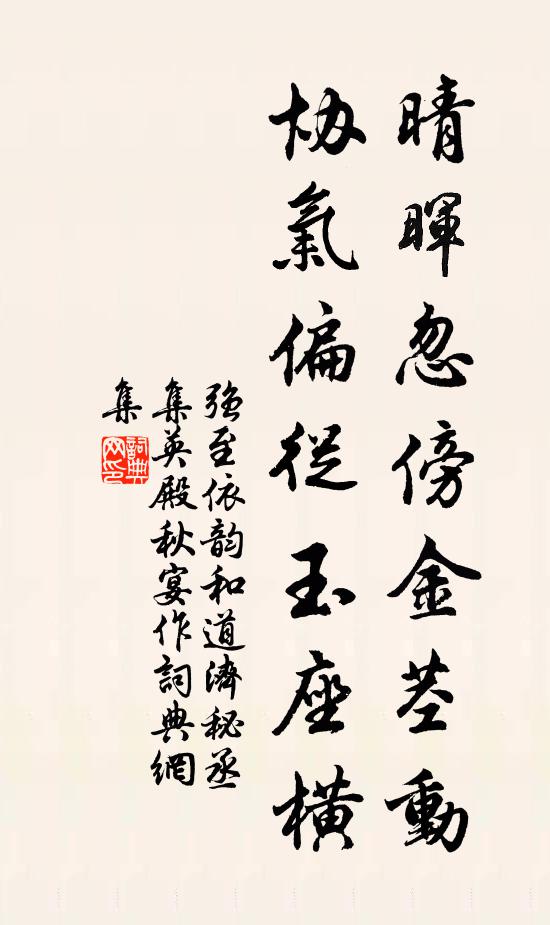 晴暉忽傍金莖動
協氣偏從玉座橫
強至依韵和道濟秘丞
集英殿秋宴作詞典網
集
詞典網印